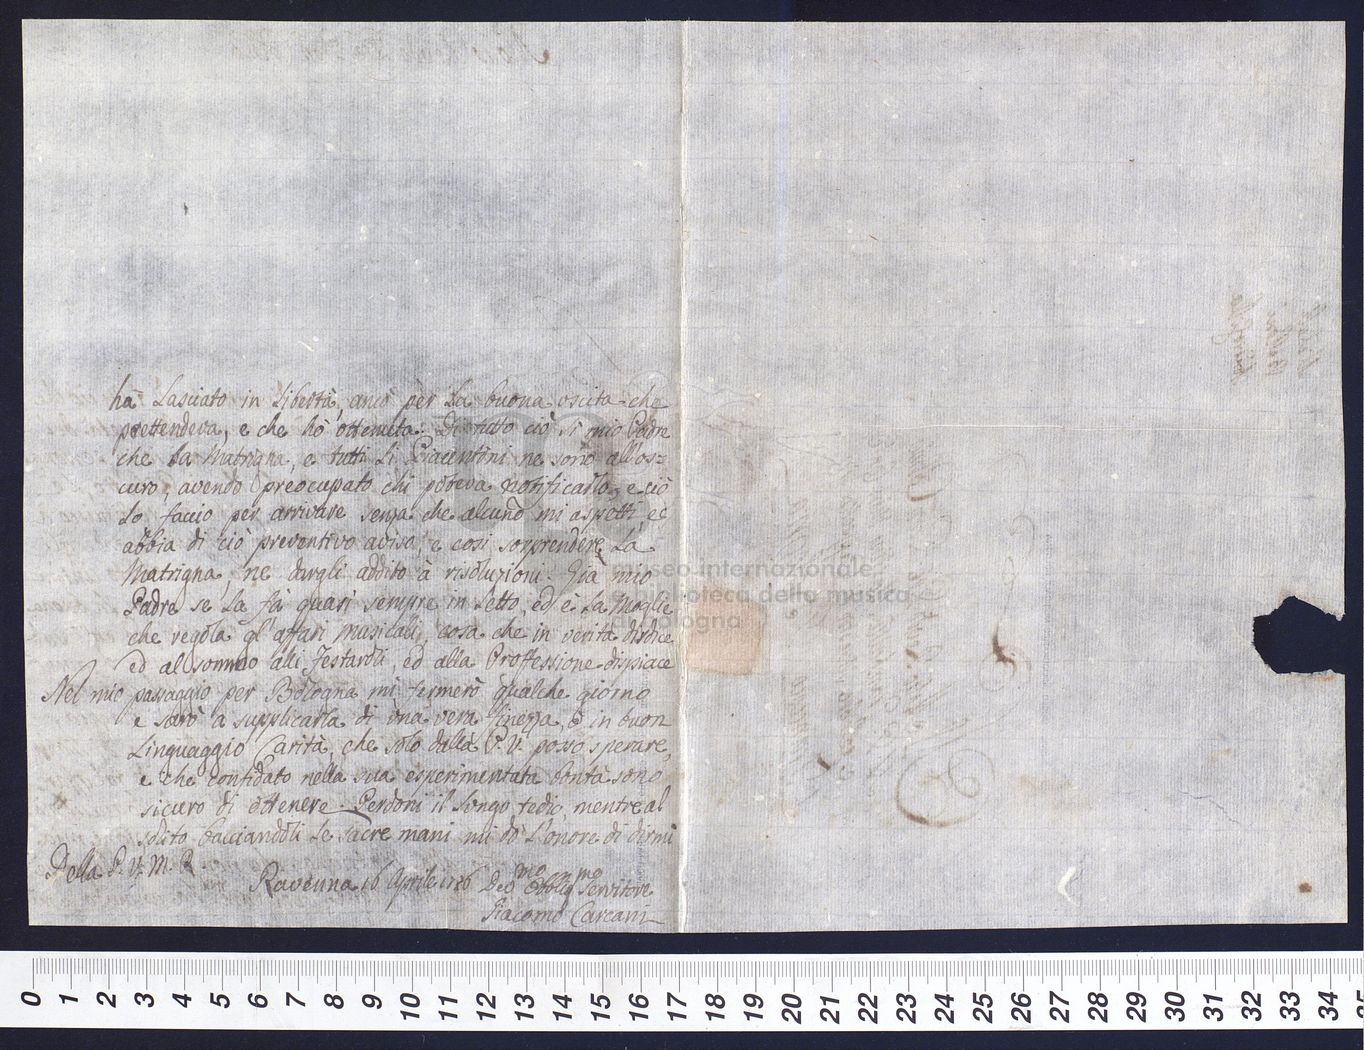 hà Lasciato in Libertà, anco per La buona uscita che
prettendeva, e che hò ottenuta. Di tutto ciò sì mio Padre
che La Matrigna, e tutti Li Piacentini ne sono all'os-
curo, avendo preocupato chi poteva notificarlo, e ciò
Lo faccio per arrivare senza che alcuno mi aspetti, e
abbia di ciò preventivo aviso, e cosi sorprendere La
Matrigna ne dargli addito à risoluzioni. Già mio
Padre se La fà quasi sempre in Letto, ed è La Moglie
che regola gl'affari Musicali, cosa che in verità disdice
ed al sommo alli Festaroli, ed alla Proffessione dispiace
Nel mio passaggio per Bologna mi fermerò qualche giorno
e sarò a supplicarla di una vera finezza, ò in buon
Linguaggio Carità, che solo dalla P. V. posso sperare,
e che confidato nella sua esperimentata bontà sono
sicuro di ottenere. Perdoni il Longo tedio, mentre al
solito bacciandoli Le sacre mani mi dò L'onore di dirmi
Della P. V. M. R.
Ravenna 16 Aprile Devmo Obbligmo Servitore
Giacomo Carcani
museo internazionale
e biblioteca della musica
di bologna
0 1 2 3 4 5 6 7 8 9 10 11 12 13 14 15 16 17 18 19 20 21 22 23 24 25 26 27 28 29 30 31 32 33 34